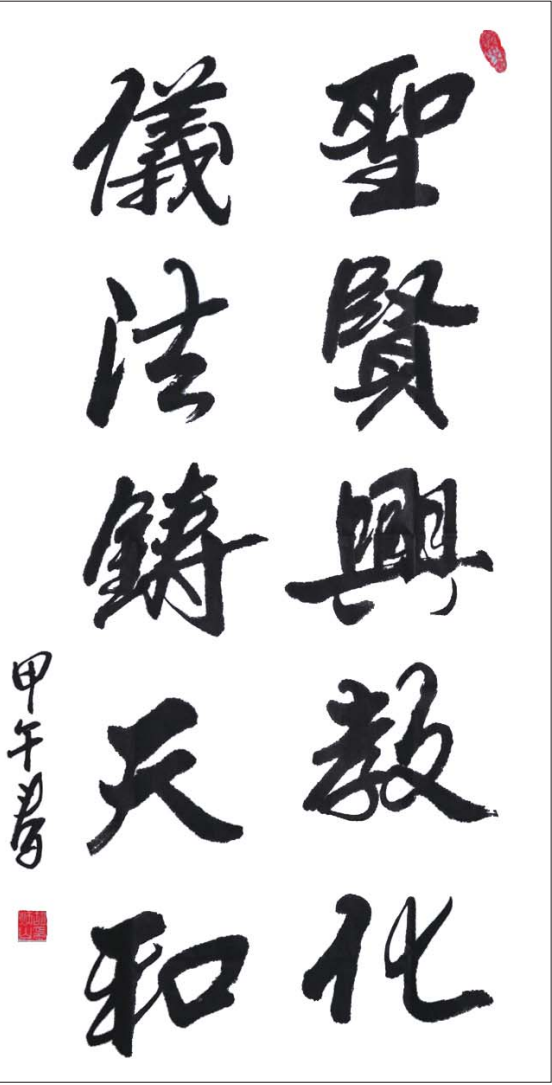 聖賢興教化
儀法鑄天和
甲午